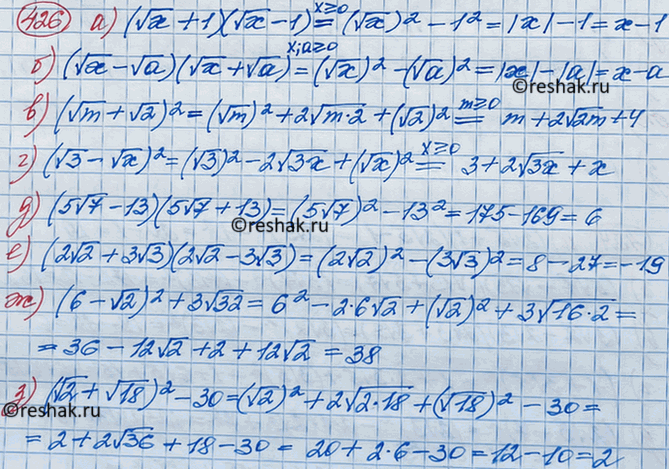 426 а) (√x + 1)(√x - 1) x≥0= (√x)² - 1² = |x| - 1 = x - 1
б) (√x - √a)(√x + √a) x;a≥0= (√x)² - (√a)² = |x| - |a| = x - a
©reshak.ru
в) (√m + √2)² = (√m)² + 2√m·2 + (√2)² m≥0= m + 2√2m + 4
г) (√3 - √x)² = (√3)² - 2√3x + (√x)² x≥0= 3 + 2√3x + x
д) (5√7 - 13)(5√7 + 13) = (5√7)² - 13² = 175 - 169 = 6
©reshak.ru
е) (2√2 + 3√3)(2√2 - 3√3) = (2√2)² - (3√3)² = 8 - 27 = -19
ж) (6 - √2)² + 3√32 = 6² - 2·6√2 + (√2)² + 3√16·2 =
= 36 - 12√2 + 2 + 12√2 = 38
з) (√2 + √18)² - 30 = (√2)² + 2√2·18 + (√18)² - 30 =
©reshak.ru
= 2 + 2√36 + 18 - 30 = 20 + 2·6 - 30 = 12 - 10 = 2